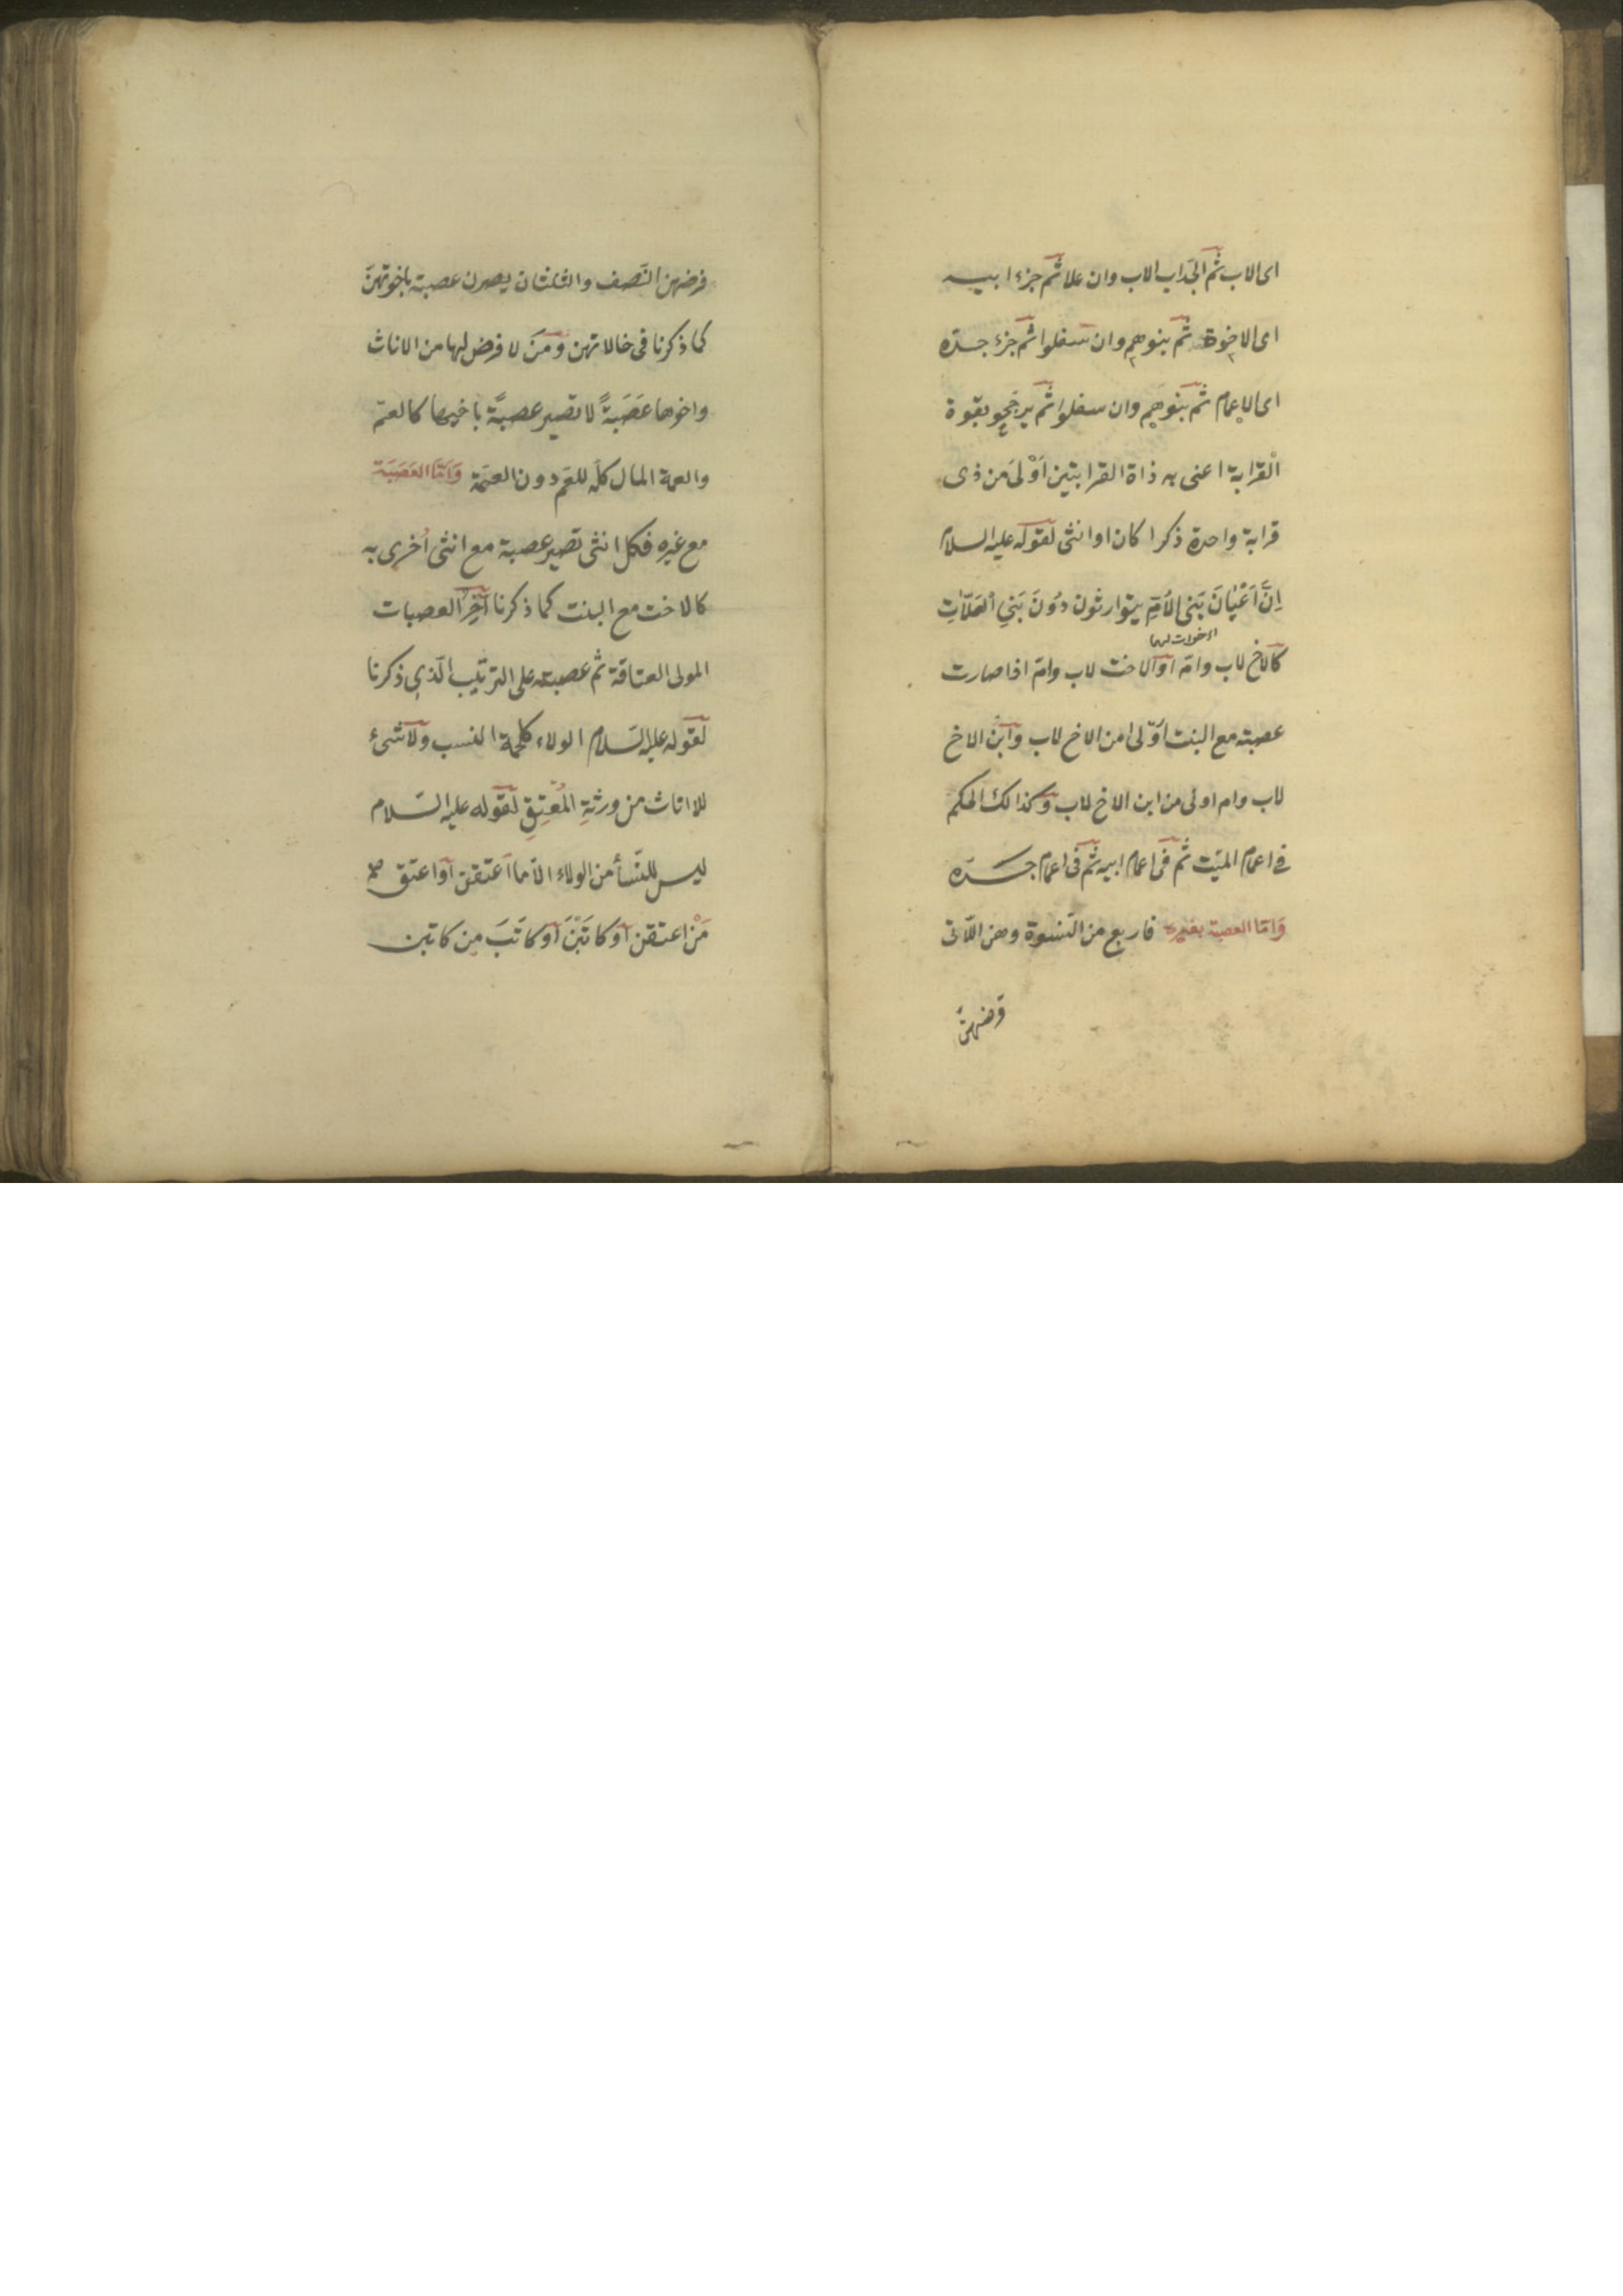 اى الاب ثم الجد اب الاب وان علا ثم جزء ابيه
اى الاخوة ثم بنوهم وان سفلوا ثم جزء جده
اى الاعمام ثم بنوهم وان سفلوا ثم يرجحو بقوة
القرابة اعنى به ذاة القرابتين اَوْلىَ من ذى
قرابة واحدة ذكرا كان او انثى لقوله عليه السلام
اِنَّ اَعْيٰانَ بَنى الاُمِّ يتوارثون دوُنَ بَنىِ الْعَلّاٰتِ
كالاخ لاب وامّ او الاخت لاب وامّ اذا صارت
عصبته مع البنت اوّلى من الاخ لاب وابن الاخ
لاب وام اولى من ابن الاخ لاب وكذالك الحكم
فى اعمام الميّت ثم فى اعمام ابيه ثم فى اعمام جدّه
وَامّا العصبة بغيره فاربع من النّسوة وهن اللّاتى
فرضهنّ
فرضهن النّصف والثلثان يصرن عصبته باخوتهنّ
كما ذكرنا فى حالاتهن ومَنَ لا فرض لها من الاناث
واخوها عَصَبَةً لا تصير عصبةً باخيها كالعمّ
والعمة المال كلّه للعَم دون العمّة وَاَمَّا العَصَبَة
مع غيره فكل انثى تصير عصبة مع انثى اُخرى به
كالاخت مع البنت كما ذكرنا آخِرُ العصبات
المولى العتاقة ثم عصبته على الترتيب الّذىِ ذكرنا
لقوله عليه السّلام الولاء كلحمة النسب ولا شئ
للاناث من ورثةِ المُعْتِقِ لقوله عليه السّلام
ليس للنّسأ من الولاء الّا ما اعتقن او اعتق
مَنْ اعتقن اَو كاتَبْنَ اَو كاتَبَ مِن كاتبن